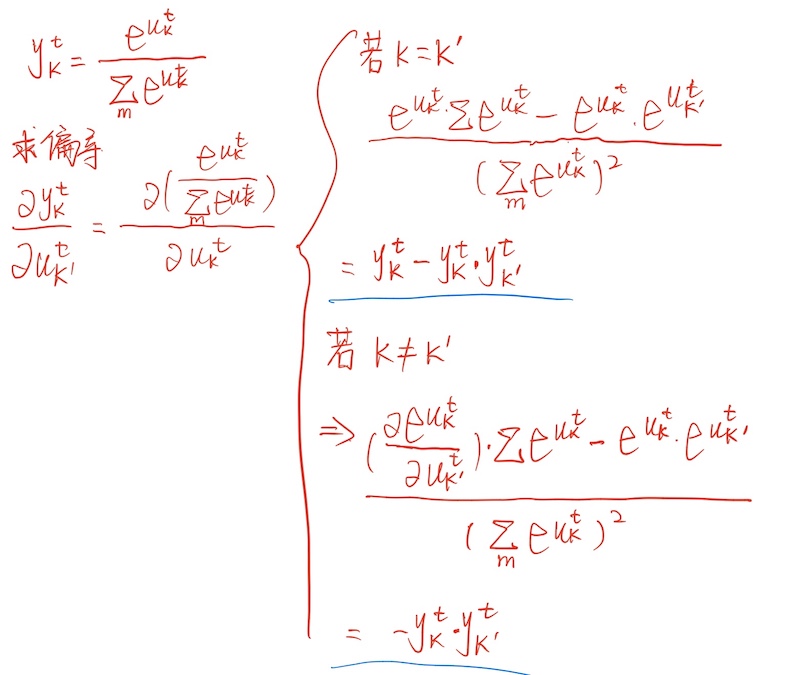 y_k^t = e^{u_k^t} / Σ_m e^{u_k^t}
求偏导
∂y_k^t / ∂u_{k'}^t = ∂( e^{u_k^t} / Σ_m e^{u_k^t} ) / ∂u_k^t
若 k = k'
( e^{u_k^t} · Σ e^{u_k^t} − e^{u_k^t} · e^{u_{k'}^t} ) / ( Σ_m e^{u_k^t} )^2
= y_k^t − y_k^t · y_{k'}^t
若 k ≠ k'
⇒ ( (∂e^{u_k^t} / ∂u_{k'}^t) · Σ e^{u_k^t} − e^{u_k^t} · e^{u_{k'}^t} ) / ( Σ_m e^{u_k^t} )^2
= −y_k^t · y_{k'}^t